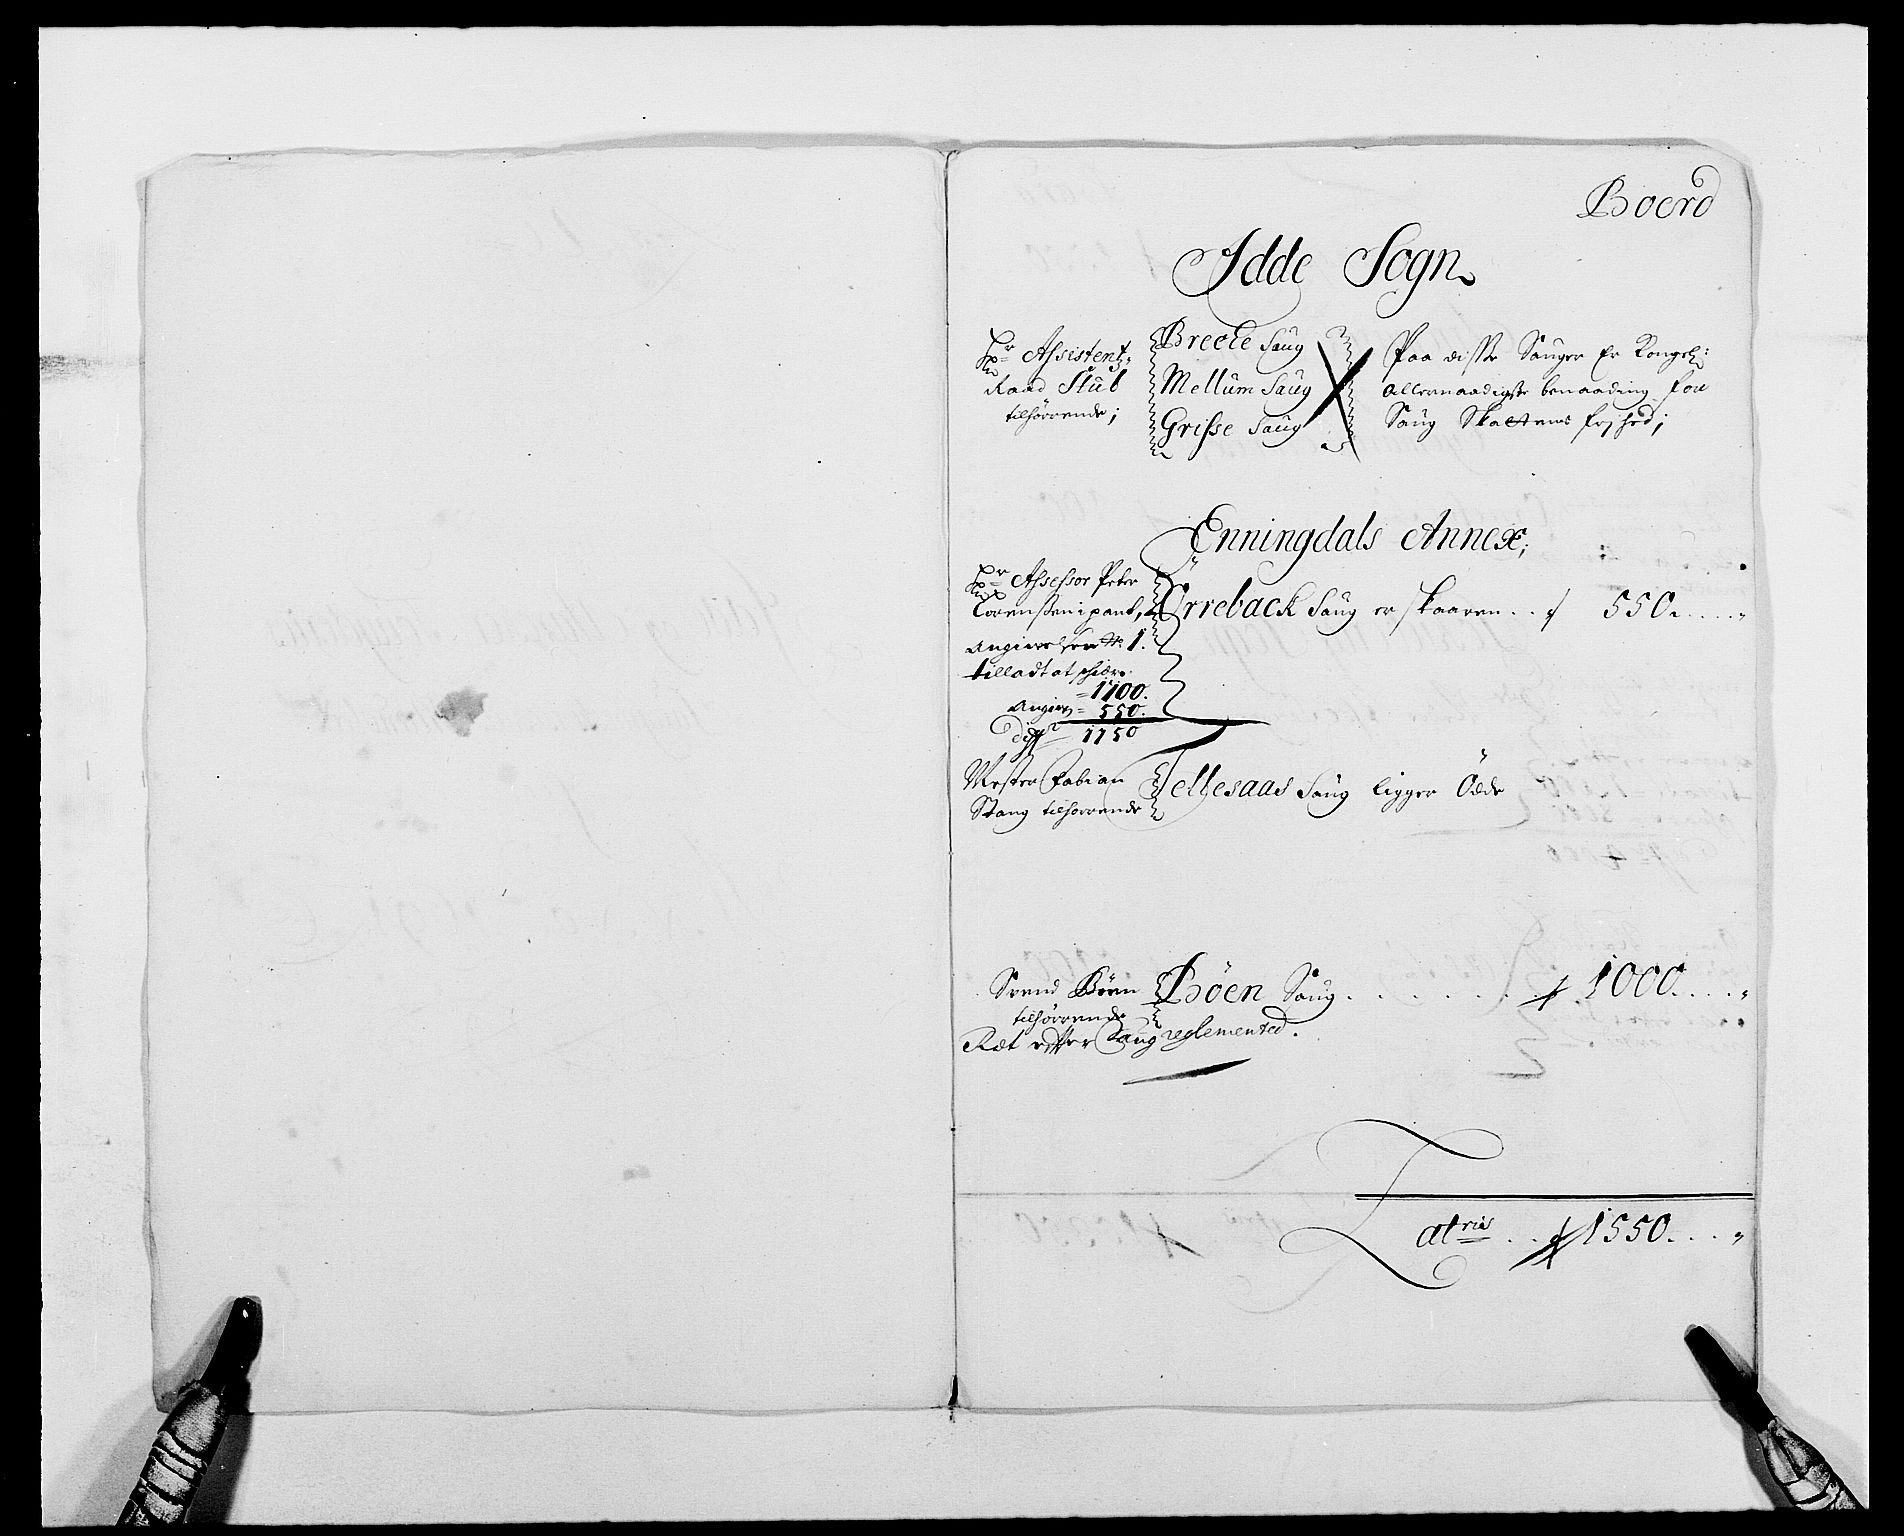 Boerd
Idde Sogn
Hr Assistent
Raad Stub
tilhörrende;
Brecke Saug
Mellum Saug
Grisse Saug
Paa disse Sauger er Kongel:
allernaadigste benaading for
Saug Skattens frjhed;
Enningdals Annex;
Hr Assessor Peter
Lorenssen i pant,
Angives for N 1.
tilladt at schiære
= 1700.
Angiven = 550.
diffr 1150
Örreback Saug er skaaren . . 550. . . . .
Mester Fabian
Stang tilhörrende
Telhesaas Saug ligger Öde
Svend Böen
tilhörrende
Böen Saug . . . . . . 1000. . . .
Ret efter Saug reglemented.
Latris . . 1550. . . .